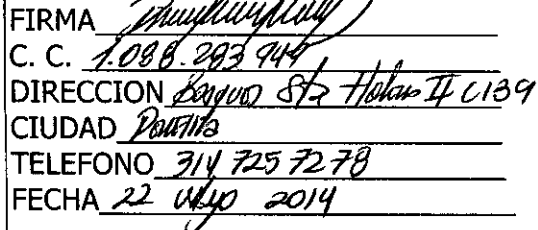 FIRMA
C. C. 1.088.293 944
DIRECCION Bosques Sta Helena II C139
CIUDAD
TELEFONO 314 725 72 78
FECHA 22 Mayo 2014